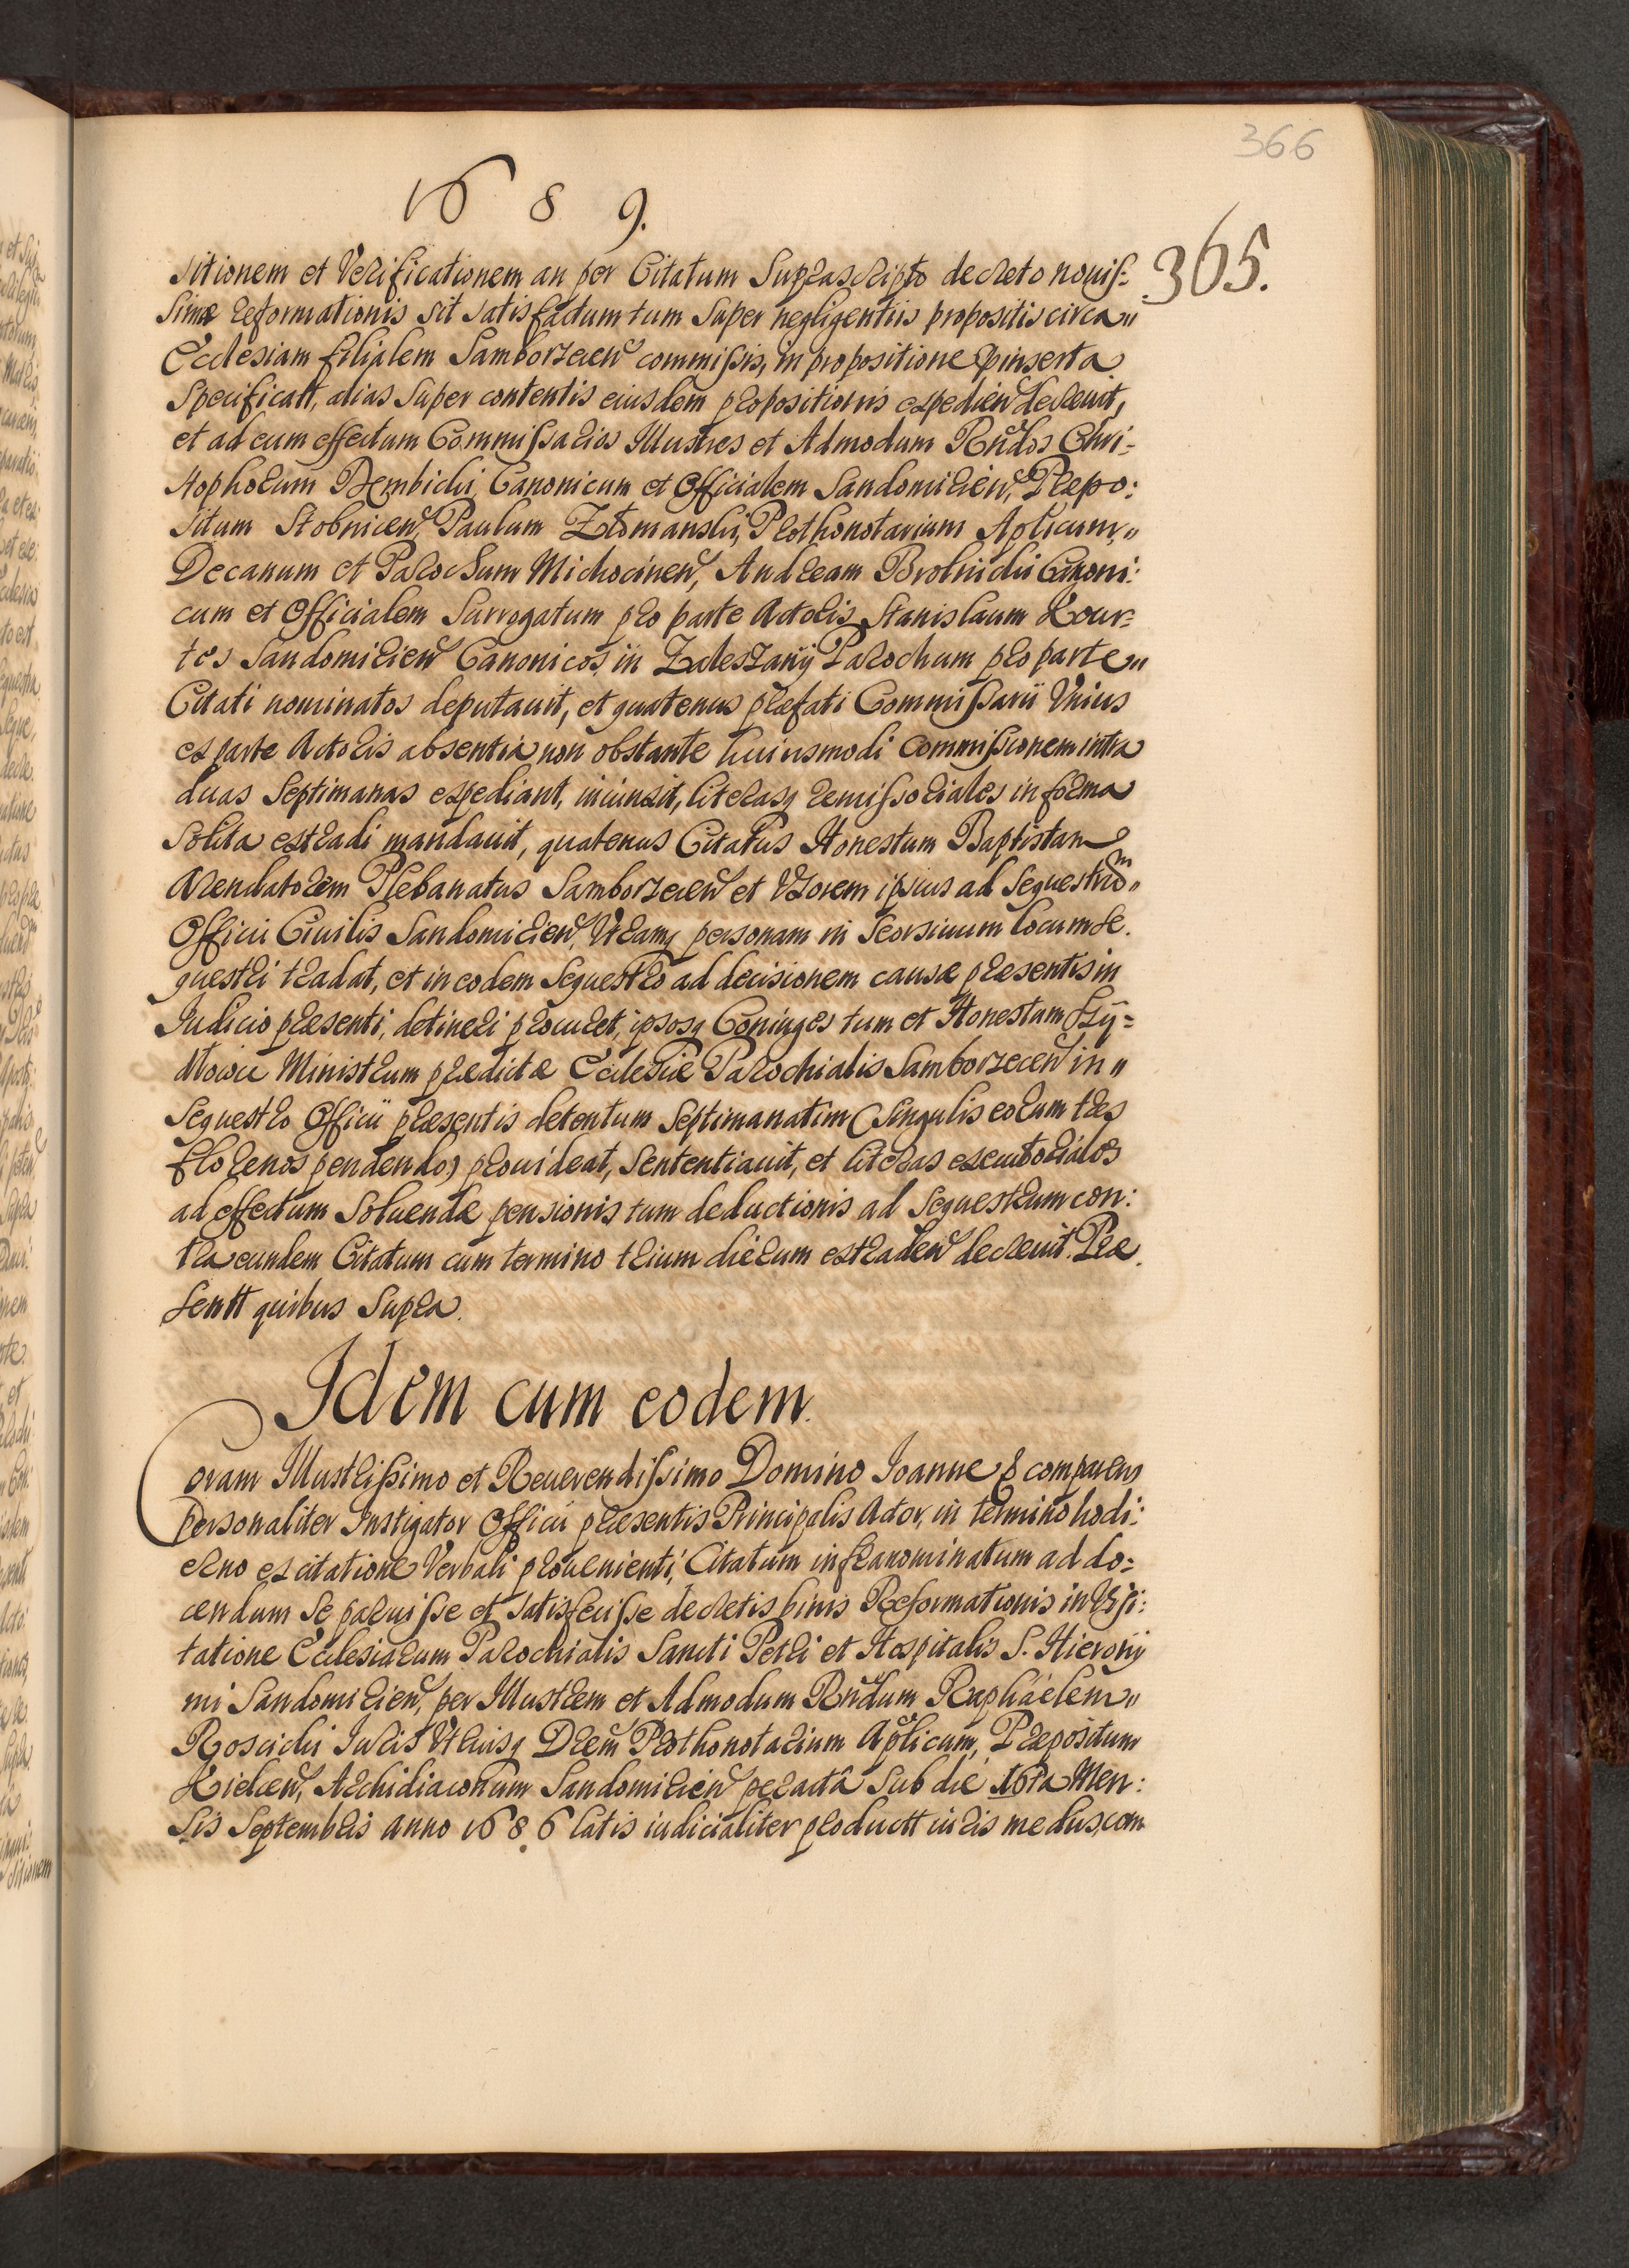 366
1689.
365.
sitionem et Verificationem an per Citatum Suprascripto decreto nouis=
simæ reformationis sit satisfactum tum super negligentiis propositis circa
Ecclesiam filialem Samborzecen̄ commissis, in propositione inserta
Specificatt, alias super contentis eiusdem propositionis expedien̄ decreuit,
et ad eum effectum Commissarios Illustres et Admodum Rn̄dos Chri=
stophorum Dembicki Canonicum et Officialem Sandomirien̄, Præpo:
situm Stobnicen̄, Paulum Prothonotarium Aplicum,
Decanum et Parochum Michocinen̄, Andream Canoni:
cum et Officialem Surrogatum pro parte Actoris, Stanislaum Kour=
tes Sandomirien̄ Canonicos, in Zaleszany Parochum pro parte
Citati nominatos deputauit, et quatenus præfati Commissarii Vnius
ex parte Actoris absentia non obstante huiusmodi Commissionem intra
duas Septimanas expediant, iniunxit, literasq remissoriales in forma
Solita extradi mandauit, quatenus Citatus Honestum Baptistam
Arendatorem Plebanatus Samborzecen̄ et Vxorem ipsius ad Sequestrum
Officii Ciuilis Sandomirien̄, Vtramq personam in Seorsiuum locum Se.
questri tradat, et in eodem Sequestro ad decisionem causæ præsentis in
Iudicio præsenti, detineri procuret, ipsosq Coniuges tum et Honestum Szy=
Ministrum prædictæ Ecclesiæ Parochialis Samborzecen̄ in
Sequestro Officii præsentis detentum Septimanatim (singulis eorum tres
florenos pendendo) prouideat, Sententiauit, et literas executoriales
ad effectum Soluendæ pensionis tum deductionis ad Sequestrum con:
tra eundem Citatum cum termino trium dierum extraden̄ decreuit. Præ
sentt quibus Supra.
Idem cum eodem.
Coram Illustrissimo et Reuerendissimo Domino Ioanne & comparens
personaliter Instigator Officii præsentis Principalis Actor, in termino hodi:
erno ex citatione Verbali prouenienti, Citatum infranominatum ad do=
cendum Se paruisse et satisfecisse decretis binis Reformationis in Visi:
tatione Ecclesiarum Parochialis Sancti Petri et Hospitalis S. Hierony
mi Sandomirien̄, per Illustrem et Admodum Rn̄dum Raphaelem
Roscicki Iuris Vtriusq Drem Prothonotarium Aplicum, Præpositum
Kielcen̄, Archidiaconum Sandomirien̄ peractâ sub die 16ta Men:
sis Septembris anno 1686 latis iudicialiter productt in eis medus, com